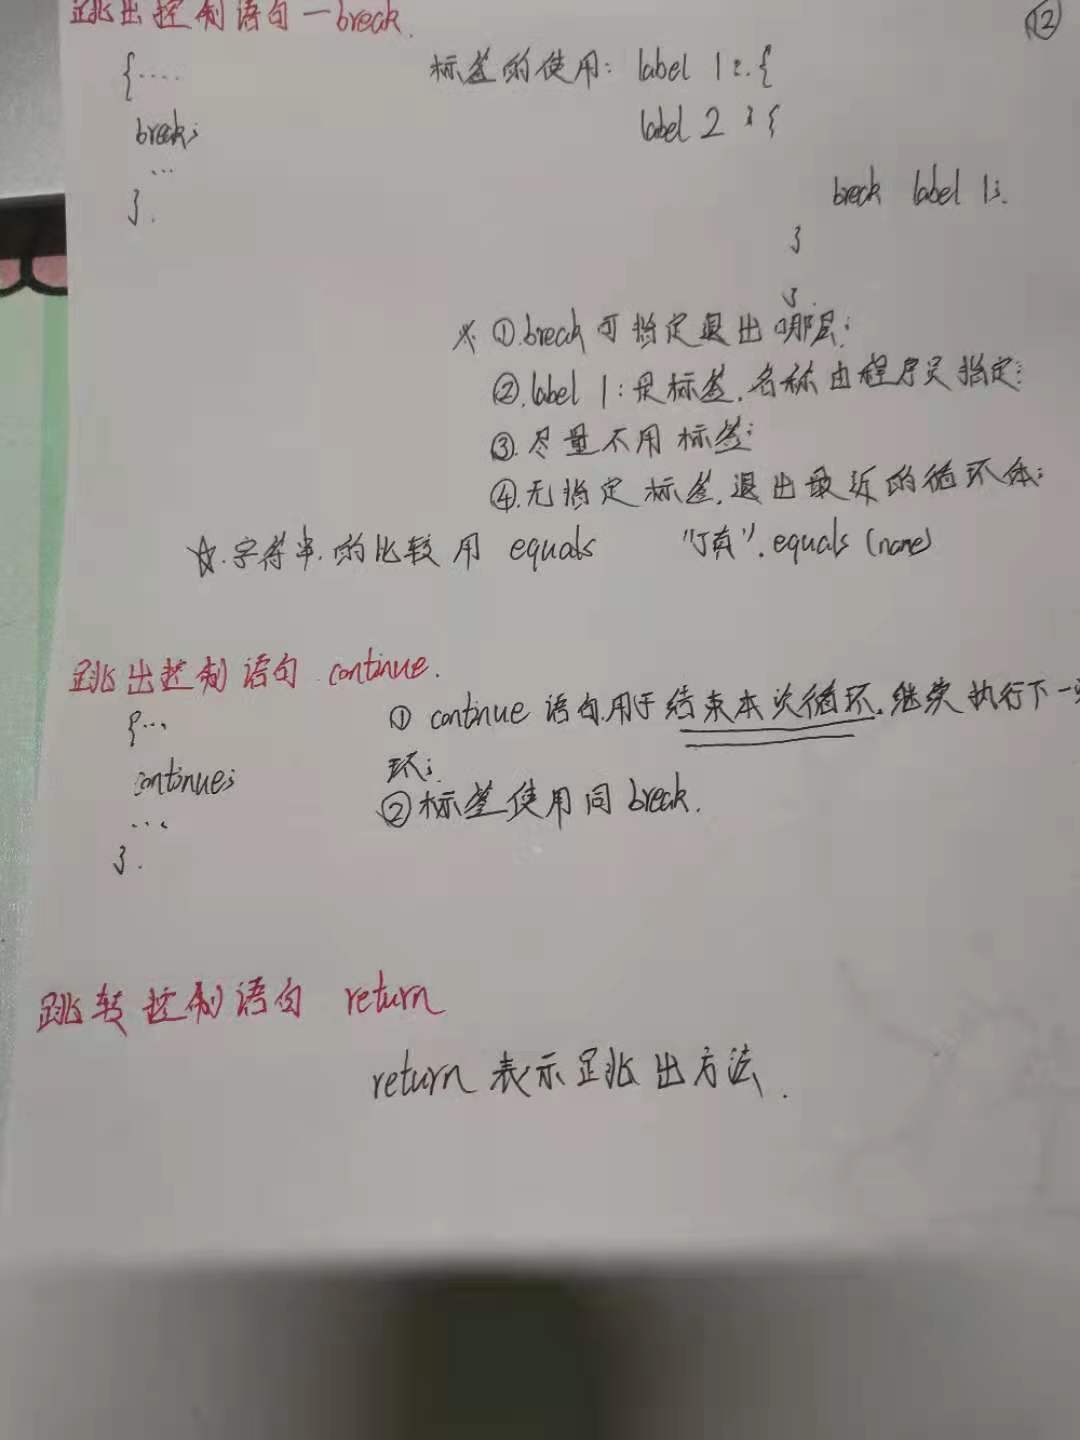 跳出控制语句—break.
⑫
{....
标签的使用: label 1:.{
label 2 : {
break;
...
break label 1;.
}.
}
}.
※ ①.break可指定退出哪层;
②.label 1:是标签.名称由程序员指定;
③.尽量不用标签;
④.无指定标签.退出最近的循环体;
☆.字符串.的比较用 equals "丁真".equals (name)
跳出控制语句 continue.
{...
① continue 语句.用于结束本次循环.继续执行下一
continue;
环;
...
②标签使用同break.
}.
跳转控制语句 return
return 表示跳出方法.